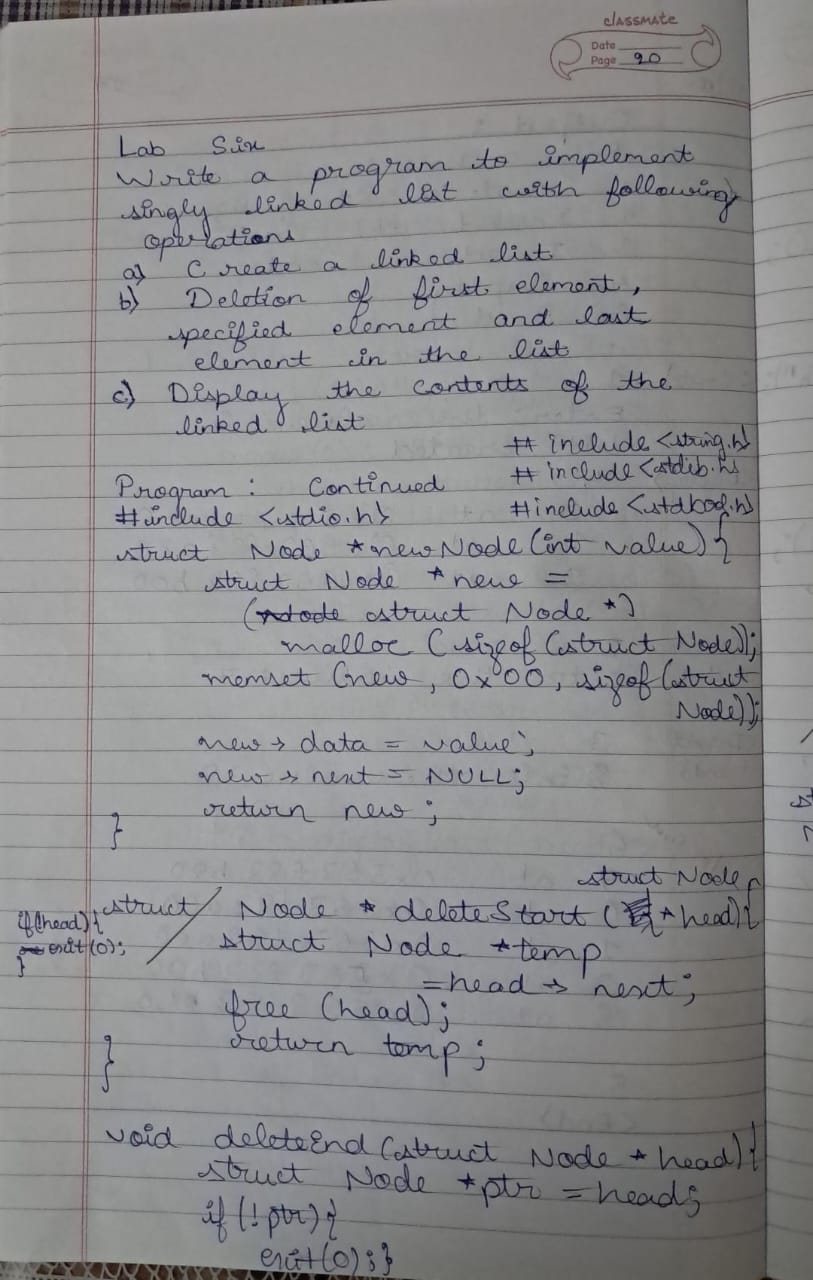 classmate
Date
Page 20
Lab Six
Write a program to implement
singly linked list with following
operations
a) Create a linked list
b) Deletion of first element,
specified element and last
element in the list
c) Display the contents of the
linked list
# include <string.h>
# include <stdlib.h>
Program : Continued
#include <stdio.h> #include <stdbool.h>
struct Node *newNode(int value){
struct Node *new =
(struct Node *)
malloc (sizeof(struct Node));
memset (new, 0x00, sizeof(struct
Node));
new → data = value;
new → next = NULL;
return new;
}
struct Node
struct Node * deleteStart ( *head){
if(head){
exit(0);
}
struct Node *temp
=head → next;
free (head);
return temp;
}
void deleteEnd (struct Node * head){
struct Node *ptr = head;
if (!ptr){
exit(0);}